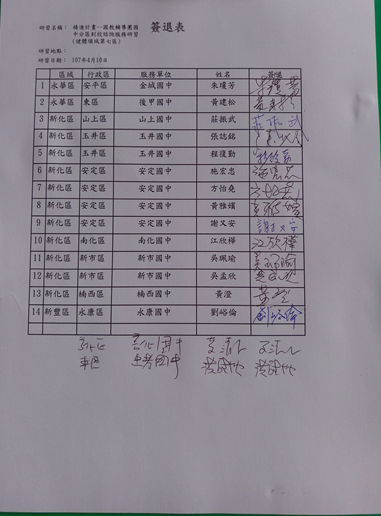 簽退表
研習名稱：精進計畫－國教輔導團國
中分區到校諮詢服務研習
(健體領域第七區)
研習地點：
研習日期：107年4月10日
區域 行政區 服務單位 姓名 簽退
1 永華區 安平區 金城國中 朱瓊芳
2 永華區 東區 後甲國中 黃建松
3 新化區 山上區 山上國中 莊振武 莊振武
4 新化區 玉井區 玉井國中 張誌銘
5 新化區 玉井區 玉井國中 程俊勤
6 新化區 安定區 安定國中 施宏忠 施宏忠
7 新化區 安定區 安定國中 方怡堯
8 新化區 安定區 安定國中 黃雅嬪
9 新化區 安定區 安定國中 謝又安 謝又安
10 新化區 南化區 南化國中 江欣樺 江欣樺
11 新化區 新市區 新市國中 吳珮瑜
12 新化區 新市區 新市國中 吳孟欣
13 新化區 楠西區 楠西國中 黃澄 黃澄
14 新豐區 永康區 永康國中 劉峪倫 劉峪倫